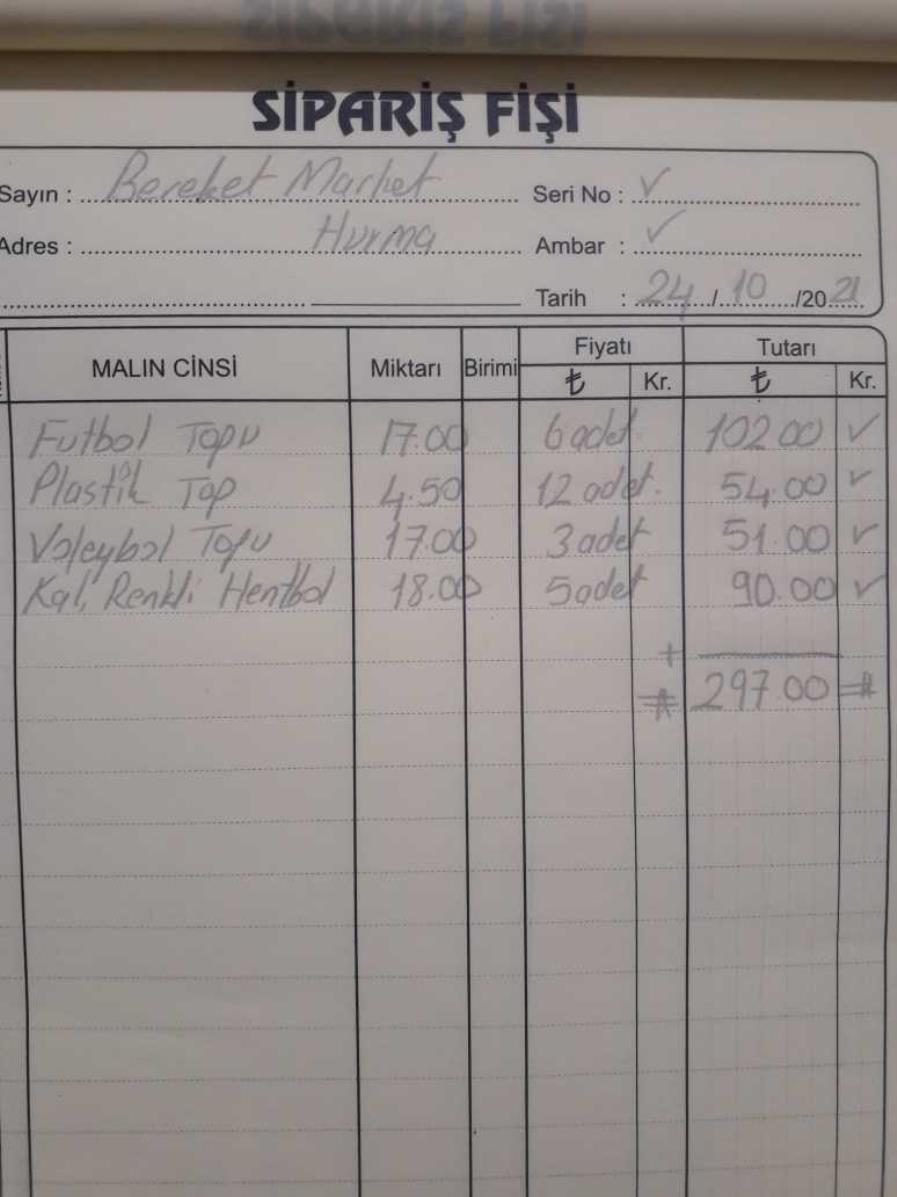 SİPARİŞ FİŞİ
Sayın : Bereket Market Seri No : ✓
Adres : Hurma Ambar : ✓
Tarih : 24/10/2021
MALIN CİNSİ Miktarı Birimi Fiyatı ₺ Kr. Tutarı ₺ Kr.
Futbol Topu 17.00 6 adet. 102.00 ✓
Plastik Top 4.50 12 adet. 54.00 ✓
Voleybol Topu 17.00 3 adet 51.00 ✓
Kal, Renkli Hentbol 18.00 5 adet 90.00 ✓
+
# 297.00 #